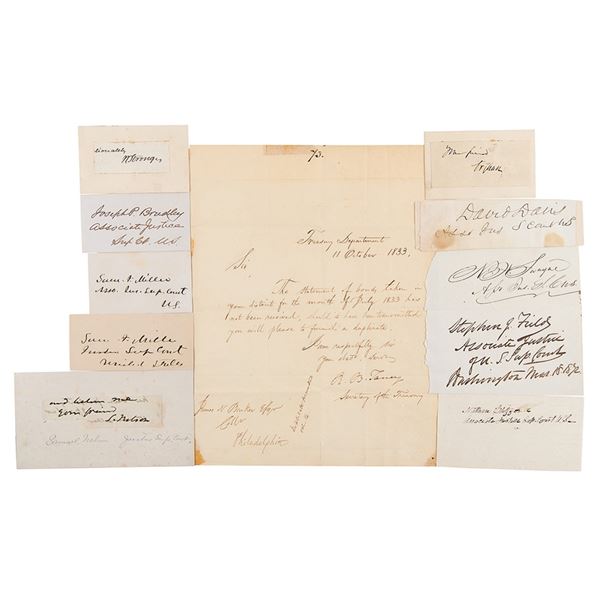 tionately
W Strong
Joseph P. Bradley
Associate Justice
Sup Ct. U.S.
Sam F. Miller
Asso. Jus. Sup. Court
U.S.
Sam F. Miller
Justice Sup Court
United States
and believe me
your friend
S. Nelson
Samuel Nelson Justice Sup Court.
73.
Treasury Department
11 October 1833.
Sir,
The Statement of bonds taken in
your district for the month of July 1833 has
not been received, should it have been transmitted
you will please to furnish a duplicate.
I am respectfully sir
your obdt. Servt
R. B. Taney
Secretary of the Treasury
James N. Barker Esqr
Collr
Philadelphia
Your friend
David Davis
Asso Jus S Court US
N H Swayne
Stephen J. Field
Associate Justice
of U. S. Sup. Court
Washington Mar. 18. 1872
Nathan Clifford
Associate Justice Sup Court U.S.